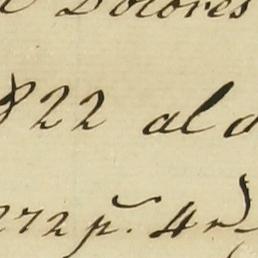 Dolores
822 al
272 p. 4 r